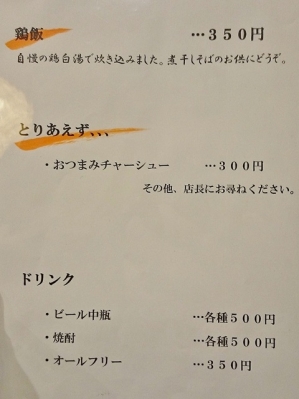 鶏飯 …３５０円
自慢の鶏白湯で炊き込みました。煮干しそばのお供にどうぞ。
とりあえず、、、
・おつまみチャーシュー …３００円
その他、店長にお尋ねください。
ドリンク
・ビール中瓶 …各種５００円
・焼酎 …各種５００円
・オールフリー …３５０円